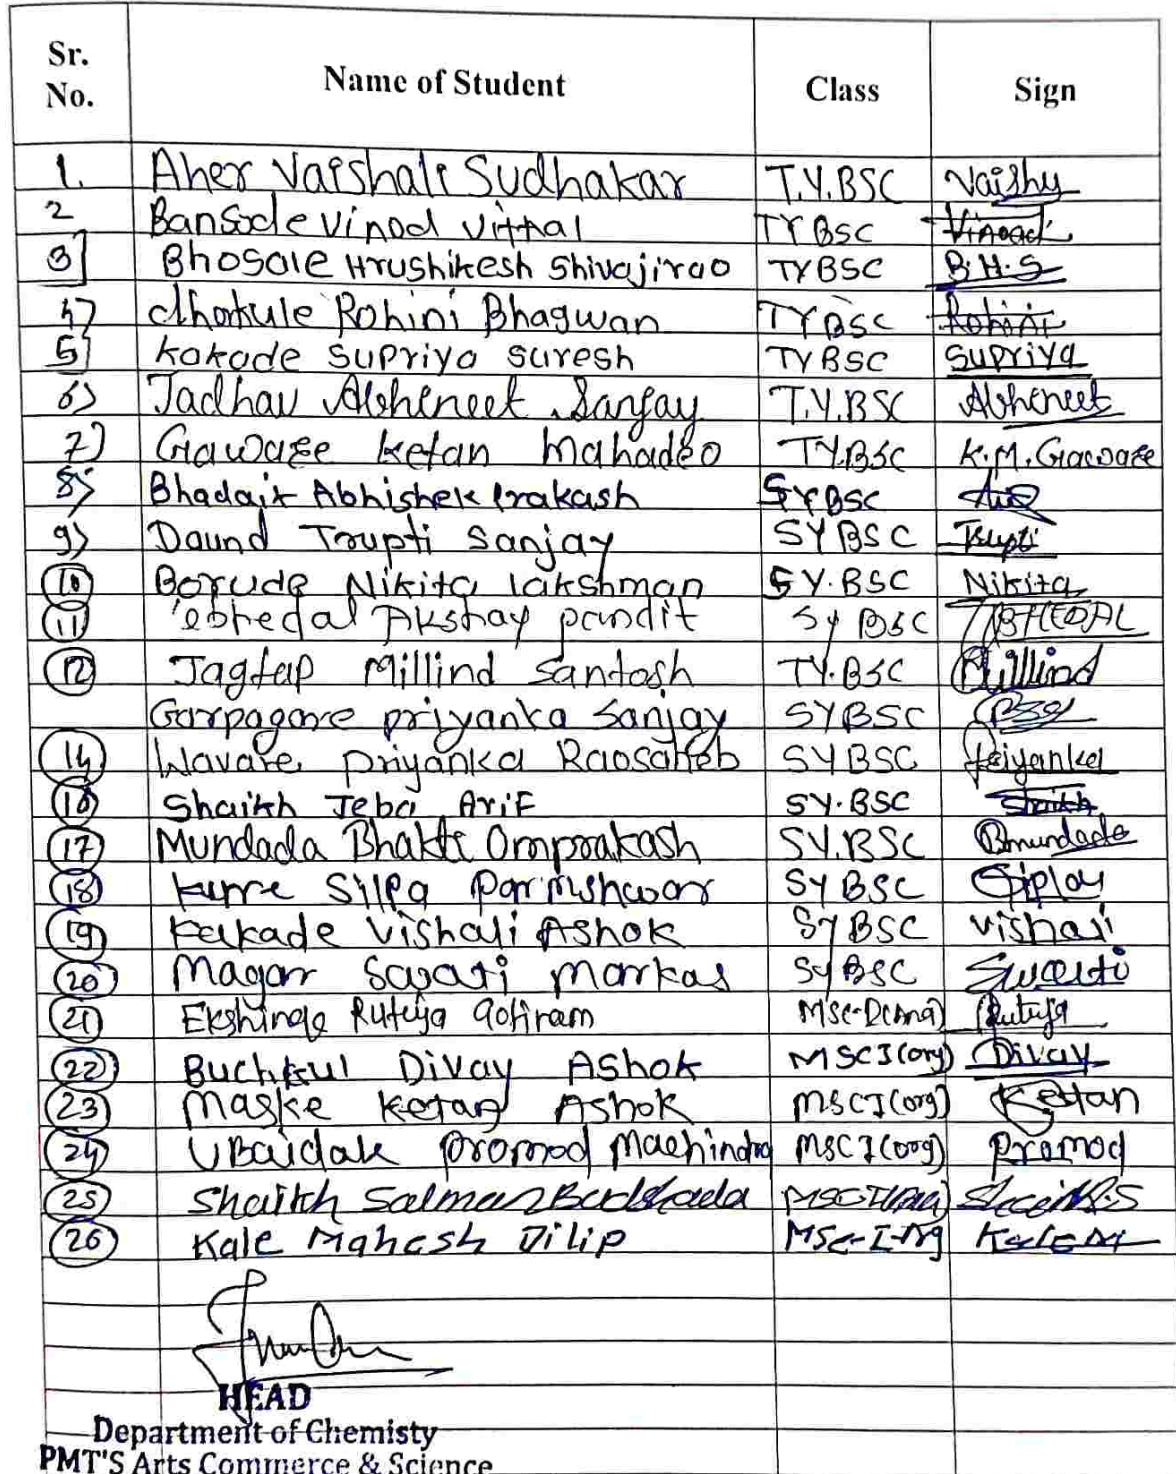 Sr. No. Name of Student Class Sign
1. Aher Vaishali Sudhakar T.Y.BSC Vaishy
2 Bansode Vinod Vitthal TYBSC Vinood
3] Bhosale Hrushikesh Shivajirao TYBSC B.H.S
4) dhokule Rohini Bhagwan TYBSC Rohini
5] Kakade Supriya Suresh TYBSC Supriya
6) Jadhav Abheneet Sanjay T.Y.BSC Abheneet
7) Gaware Ketan Mahadeo TY.BSC K.M.Gaware
8) Bhadait Abhishek Prakash SYBSC
9) Daund Trupti Sanjay SYBSC Trupti
10 Borude Nikita Lakshman SY.BSC Nikita
11 Akshay pandit SY BSC
12 Jagtap Millind Santosh TY.BSC Millind
Garpagare priyanka Sanjay SYBSC
14 Wavare Priyanka Raosaheb SYBSC Priyanka
16 Shaikh Jeba Arif SY.BSC Shaikh
17 Mundada Bhakti Omprakash SY.BSC Bmundada
18 Silpa SYBSC
19 Kakade Vishali Ashok SYBSC Vishali
20 Magar Swati Markas SyBSC Swati
21 Ekshinge Rutuja Gotiram Rutuja
22 Buchkul Divay Ashok MSCI(org) Divay
23 Maske Ketan Ashok MSCI(org) Ketan
24 Ubaidak promod Machindra MSCI(oog) promod
25 Shaikh Salman Badshada
26 Kale Mahesh Dilip
HEAD
Department of Chemisty
PMT'S Arts Commerce & Science